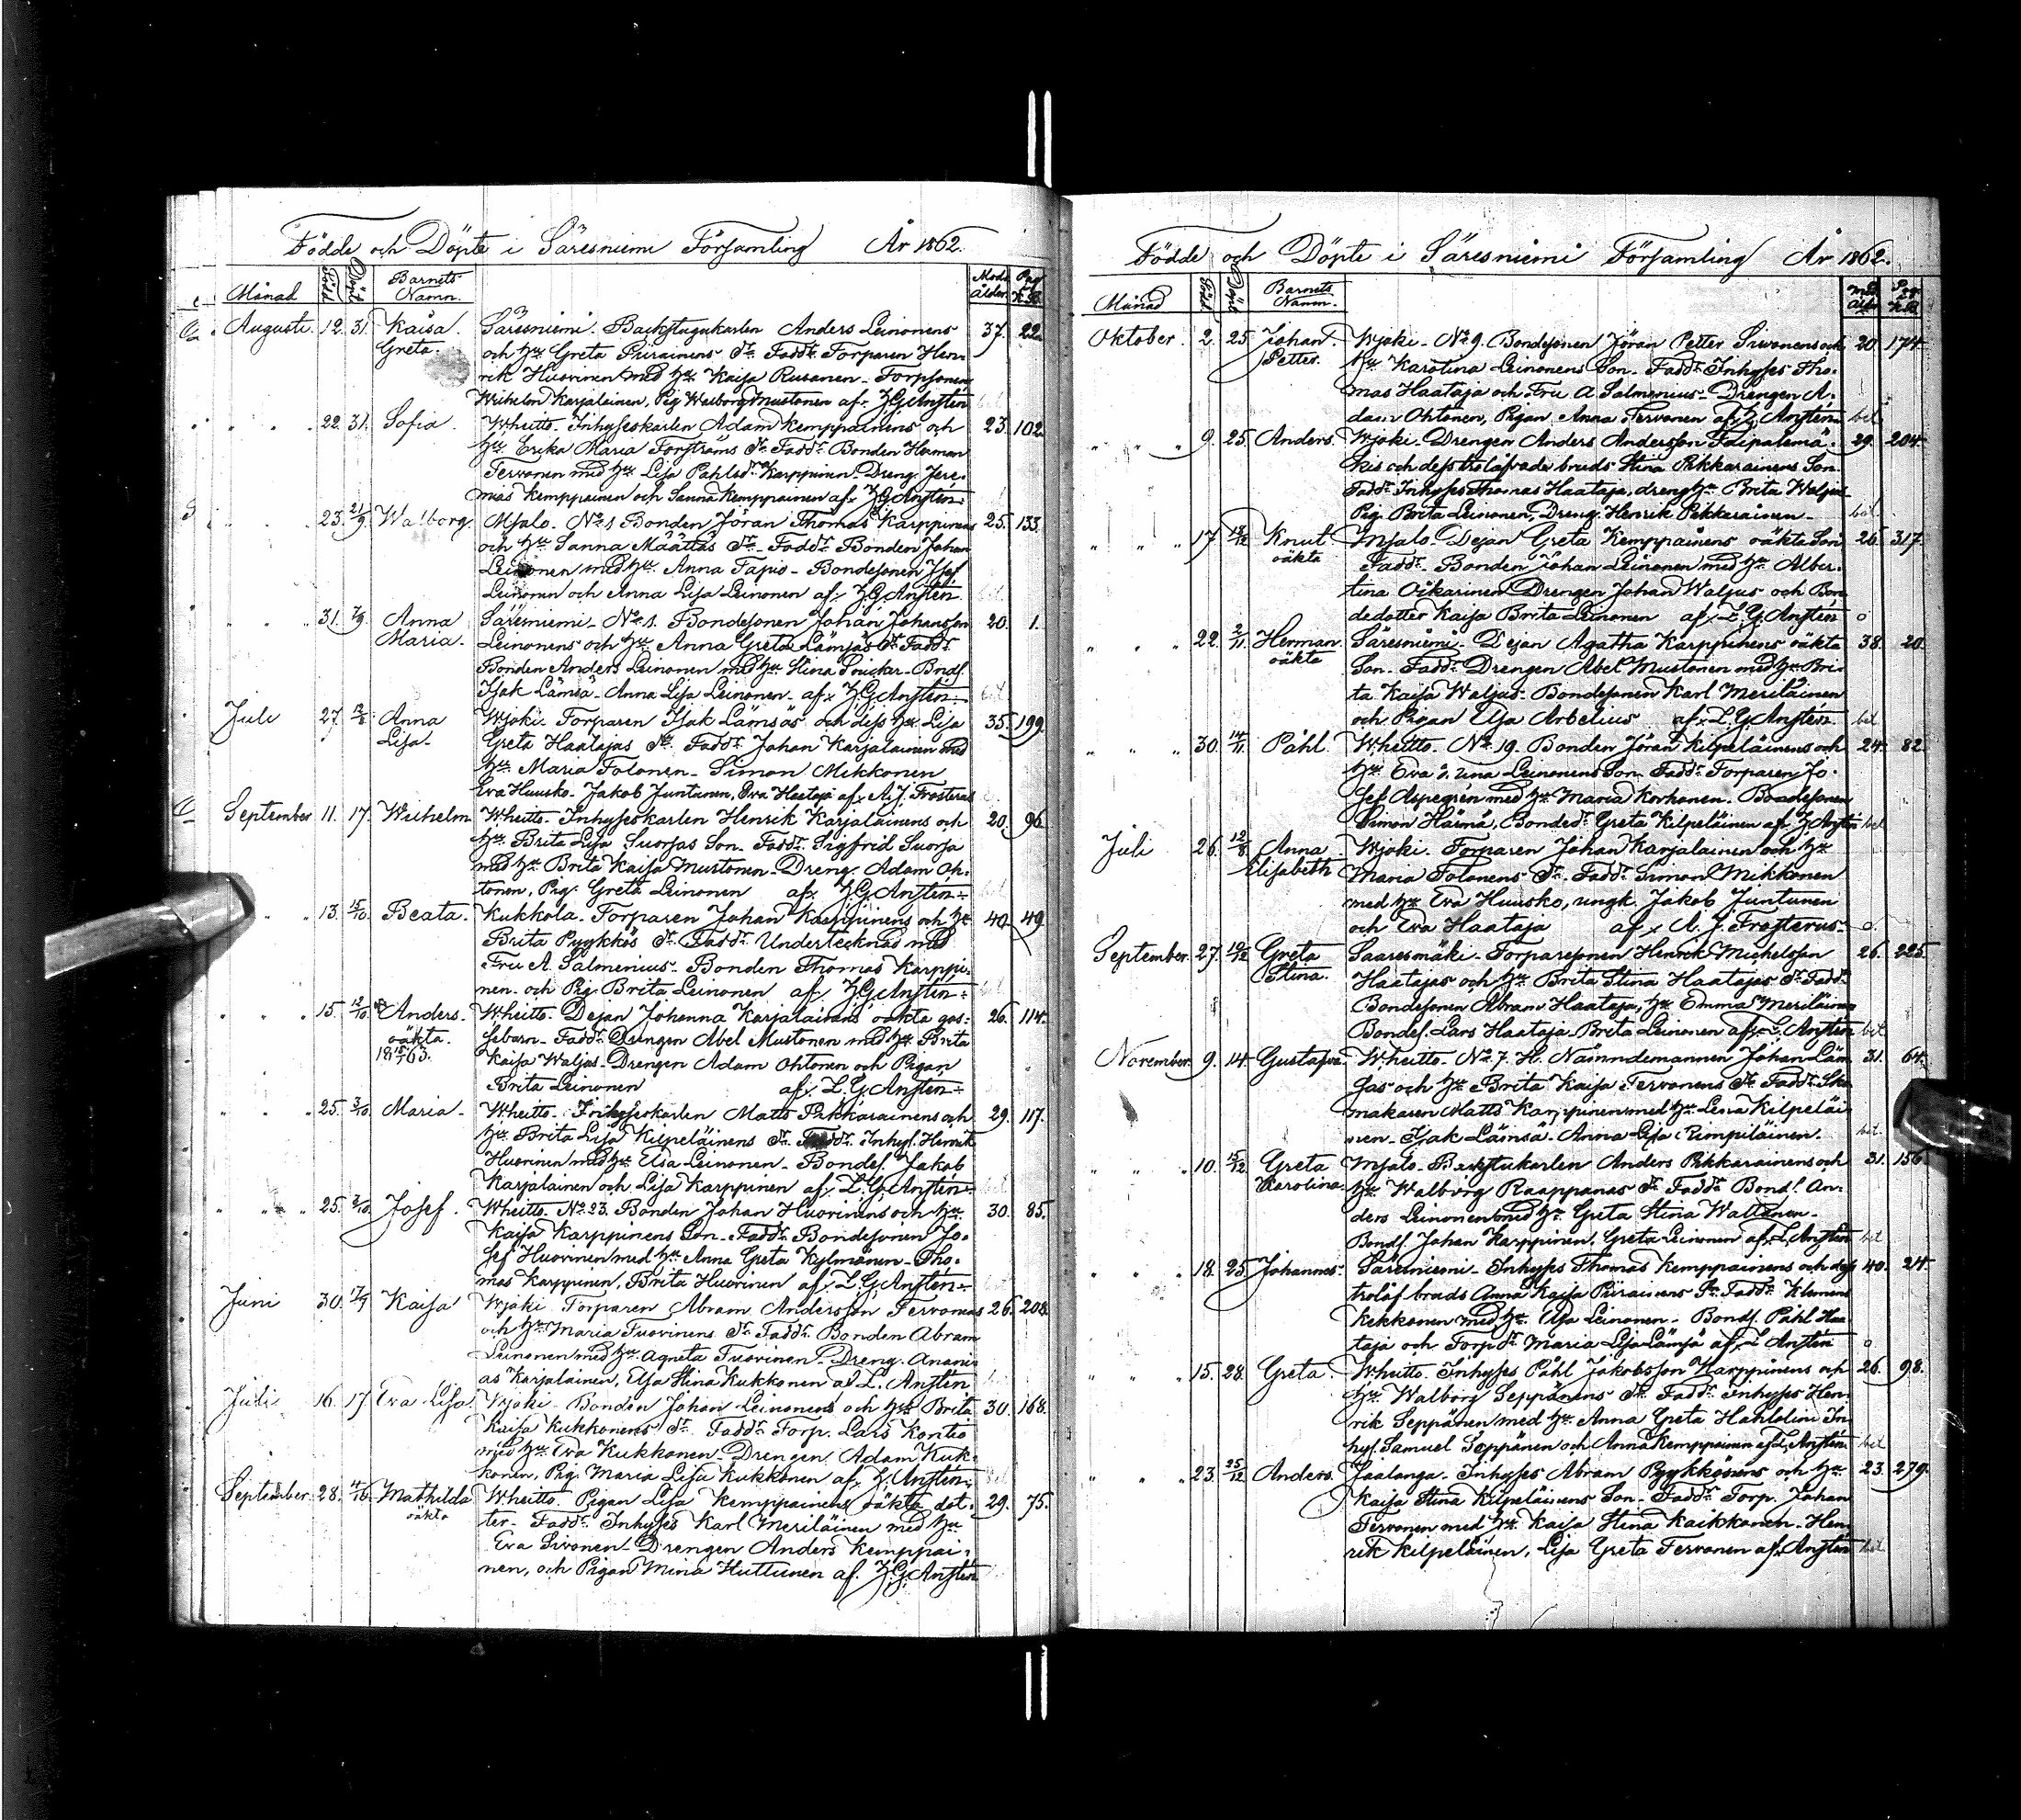 Födde och Döpte i Säresniemi Församling År 1862.
Månad Född Döpt Barnets Namn. Mods ålder. Pag. K.B.
Augusti. 12. 31. Kaisa Säresniemi. Backstugukarlen Anders Leinonens 37. 22.
Greta. och hu Greta Piirainens dr Faddr Torparen Hen-
rik Huovinen med hu Kaisa Rusanen - Torpsonen
Wilhelm Karjalainen, Pig Walborg Mustonen af. Z.G. Ansten
" " 22. 31. Sofia. Wheitto. Inhyseskarlen Adam Kemppainens och 23. 102
hu Erika Maria Forströms dr Faddr Bonden Herman
Tervonen med hu Lisa Påhlsdr Karppinen - Dreng. Jere-
mias Kemppainen och Sanna Kemppainen af. Z.G. Ansten.
" " 23. 21/9. Walborg. Mjalo. No 1 Bonden Jöran Thomas Karppinens 25. 133.
och hu Sanna Määttäs dr - Faddr Bonden Johan
Leinonen med hu Anna Tapio - Bondesonen Josef
Leinonen och Anna Lisa Leinonen af. Z.G. Ansten.
" " 31. 7/9. Anna Säresniemi - No 1. Bondesonen Johan Johansson 20. 1.
Maria. Leinonens och hu Anna Greta Lämsäs dr Faddr
Bonden Anders Leinonen med hu Stina - Bnds.
Isak Lämsä - Anna Lisa Leinonen - af. Z.G. Ansten.
Juli 27. 12/8. Anna Wjoki. Torparen Isak Lämsäs och dess hu Lisa 35. 199.
Lisa. Greta Haatajas dr. Faddr Johan Karjalainen med
hu Maria Tolonen - Simon Mikkonen
Eva Huusko - Jakob Juntunen, Eva Haataja af. A.J. Frosterus
September 11. 17. Wilhelm Wheitto. Inhyseskarlen Henrik Karjalainens och 20. 96.
hu Brita Lisa Suorsas Son. Faddr Sigfrid Suorsa
med hu Brita Kaisa Mustonen - Dreng. Adam Oh-
tonen, Pig. Greta Leinonen af. Z.G. Ansten.
" " 13. 15/10. Beata. Kukkola. Torparen Johan Karppinens och hu 40. 49
Brita Pyykkös dr Faddr Undertecknad med
Fru A. Salmenius - Bonden Thomas Karppi-
nen - och Pig. Brita Leinonen af. Z.G. Ansten.
" " 15. 12/10. Anders. Wheitto. Dejan Johanna Karjalainens oäkta gos- 26. 114.
oäkta. sebarn - Faddr Drengen Abel Mustonen med hu Brita
18 63. Kaisa Waljus - Drengen Adam Ohtonen och Pigan
Brita Leinonen af. L.G. Ansten.
" " 25. 3/10. Maria - Wheitto - Inhyseskarlen Matts Pikkarainens och 29. 117.
hu Brita Lisa Kilpeläinens dr Faddr Inhys. Henrik
Huovinen med hu Elsa Leinonen - Bondes. Jakob
Karjalainen och Lisa Karppinen af. L.G. Ansten.
" " 25. 2/10. Josef. Wheitto. No 23. Bonden Johan Huovinens och hu 30. 85.
Kaisa Karppinens Son. Faddr Bondesonen Jo-
sef Huovinen med hu Anna Greta Kylmänen - Tho-
mas Karppinen, Brita Huovinen af. L.G. Ansten.
Juni 30. 17/7 Kaisa Wjoki Torparen Abram Andersson Tervonens 26. 208.
och hu Maria Tuovinens dr Faddr Bonden Abram
Leinonen med hu Agneta Tuovinen - Dreng. Anani-
as Karjalainen, Elsa Stina Kukkonen af L. Ansten
Juli 16. 17. Eva Lisa Wjoki - Bonden Johan Leinonens och hu Brita 30. 168.
Kaisa Kukkonens dr Faddr Torp. Lars Kontio
med hu Eva Kukkonen - Drengen Adam Kuk-
konen, Pig. Maria Lisa Kukkonen af. Z. Ansten.
September. 28. Mathilda Wheitto. Pigan Lisa Kemppainens oäkta dot- 29. 75.
oäkta ter - Faddr Inhyses Karl Meriläinen med hu
Eva Sivonen - Drengen Anders Kemppai-
nen, och Pigan Mina Huttunen af. Z.G. Ansten
Födde och Döpte i Säresniemi Församling År 1862.
Månad Född Döpt Barnets Namn. Mod. Ålder Pag. K.B.
Oktober. 2. 25 Johan Wjoki - No 9. Bondesonen Jöran Petter Sivonens och 20. 174.
Petter. hu Karolina Leinonens Son - Faddr Inhyses Tho-
mas Haataja och Fru A Salmenius - Drengen A-
dam Ohtonen, Pigan Anna Tervonen af Z.G. Ansten bet
" " 9. 25. Anders. Wjoki. Drengen Anders Andersson Taipalemä- 29. 204.
kis och dess trolofvade bruds Stina Pikkarainens Son.
Faddr Inhyses Thomas Haataja, dreng hu Brita Waljus
Pig. Brita Leinonen, Dreng. Henrik Pikkarainen - bet.
" " 17. 13/12 Knut Mjalo - Dejan Greta Kemppainens oäkta Son 26. 317.
oäkta Faddr Bonden Johan Leinonen med hu Alber-
tina Oikarinen Drengen Johan Waljus och Bon-
dedotter Kaisa Brita Leinonen af. L.G. Ansten o
" " 22. 2/11. Herman. Säresniemi - Dejan Agatha Karppinens oäkta 38. 20.
oäkta Son - Faddr Drengen Abel Mustonen med hu Bri-
ta Kaisa Waljus - Bondesonen Karl Meriläinen
och Pigan Elsa Arbelius af. L.G. Ansten. bet
" " 30. 14/11. Påhl. Wheitto. No 19. Bonden Jöran Kilpeläinens och 24. 82.
hu Eva Leinonens Son Faddr Torparen Jo-
sef Aspegrén med hu Maria Korhonen. Bondesonen
Simon Härmä, Bondedr Greta Kilpeläinen af. Z. Ansten bet
Juli 26. 12/8 Anna Wjoki. Torparen Johan Karjalainen och hu
Elisabeth Maria Tolonens dr. Faddr Simon Mikkonen
med hu Eva Huusko, ungk. Jakob Juntunen
och Eva Haataja af. A.J. Frosterus - o.
September. 27. Greta Saaresmäki - Torparesonen Henrik Michelsson 26. 225.
Stina. Haatajas och hu Brita Stina Haatajas dr Faddr
Bondesonen Abram Haataja, hu Emma Meriläinen
Bondes. Lars Haataja - Brita Leinonen af. L. Ansten bet
November. 9. 14. Gustafva Wheitto. No 7. H. Nämndemannen Johan Läm- 31. 64.
säs och hu Brita Kaisa Tervonens dr Faddr Sko-
makaren Matts Karppinen med hu Lisa Kilpeläi-
nen - Isak Lämsä. Anna Lisa Rimpiläinen. bet.
" " 10. 15/12. Greta Mjalo - Backstukarlen Anders Pikkarainens och 31. 156
Karolina. hu Walborg Raappanas dr Faddr Bond. An-
ders Leinonen med hu Greta Stina Waltanen -
Bonds. Johan Karppinen, Greta Leinonen af. L. Ansten bet
" " 18. 25. Johannes. Säresniemi - Inhyses Thomas Kemppainens och dess 40. 24.
trolof. bruds Anna Kaisa Piirainens Faddr Klemens
Kekkonen med hu Elsa Leinonen - Bonds. Påhl Haa-
taja och Torpdr Maria Lisa Lämsä af. L. Ansten o
" " 15. 28. Greta. Wheitto. Inhyses Påhl Jakobsson Karppinens och 26. 98.
hu Walborg Seppänens dr Faddr Inhyses Hen-
rik Seppänen med hu Anna Greta In-
hys. Samuel Seppänen och Anna Kemppainen af L. Ansten. bet
" " 23. 25/12. Anders. Jaalanga - Inhyses Abram Pyykkönens och hu 23. 279.
Kaisa Stina Kilpeläinens Son - Faddr Torp. Johan
Tervonen med hu Kaisa Stina Kaikkonen - Hen-
rik Kilpeläinen, Lisa Greta Tervonen af. Ansten bet